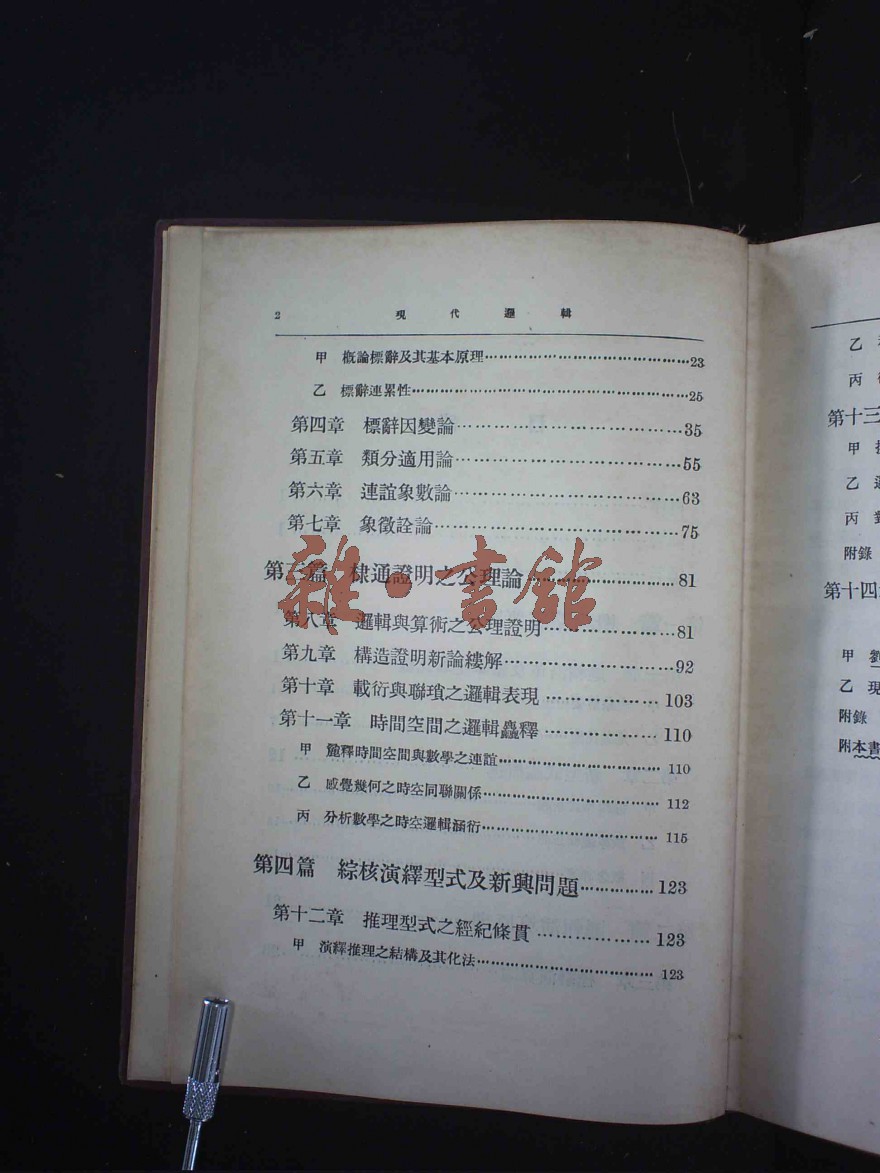 2 現代邏輯
甲 概論標辭及其基本原理……23
乙 標辭連累性……25
第四章 標辭因變論……35
第五章 類分適用論……55
第六章 連誼象數論……63
第七章 象徵詮論……75
第三篇 棣通證明之公理論……81
第八章 邏輯與算術之公理證明……81
第九章 構造證明新論縷解……92
第十章 載衍與聯瑣之邏輯表現……103
第十一章 時間空間之邏輯蠡釋……110
甲 麄釋時間空間與數學之連誼……110
乙 感覺幾何之時空同聯關係……112
丙 分析數學之時空邏輯涵衍……115
第四篇 綜核演繹型式及新興問題……123
第十二章 推理型式之經紀條貫……123
甲 演繹推理之結構及其化法……123
雜·書館
乙
丙
第十三
甲
乙
丙
附錄
第十四
甲
乙 現
附錄
附本書